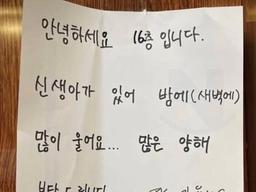 안녕하세요 16층 입니다.
신생아가 있어 밤에(새벽에)
많이 울어요... 많은 양해
부탁드립니다